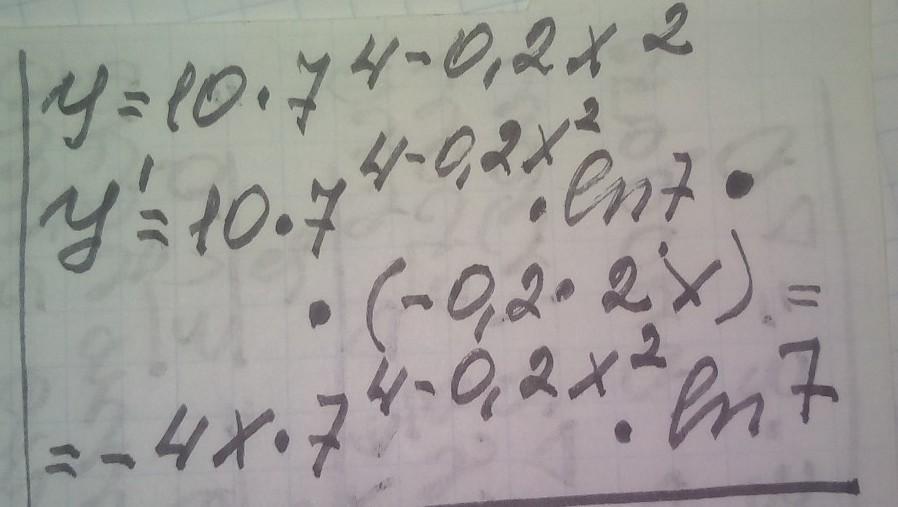 y = 10 · 7^{4-0,2x^2}
y' = 10 · 7^{4-0,2x^2} · ln7 ·
· (-0,2 · 2x) =
= -4x · 7^{4-0,2x^2} · ln7